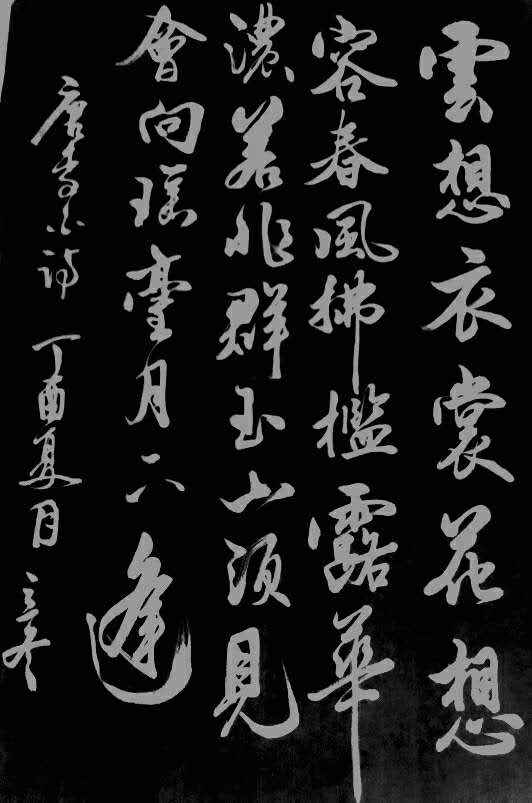 雲想衣裳花想
容春風拂檻露華
濃若非群玉山須見
會向瑤臺月下逢
唐李白詩 丁酉夏月